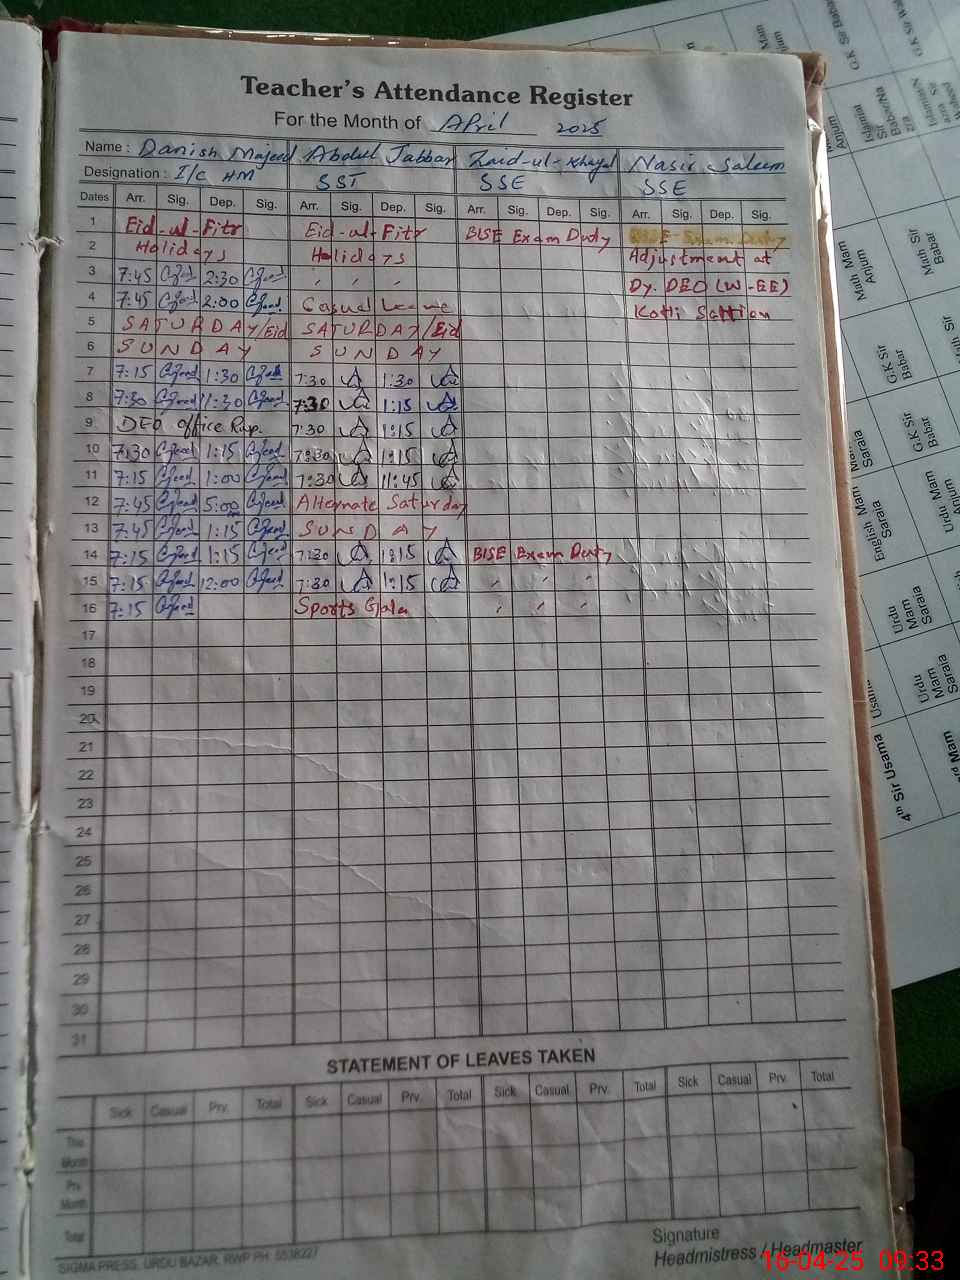 Teacher's Attendance Register
For the Month of April 2025
Name : Danish Majeed Abdul Jabbar Zaid-ul-Khayal Nasir Saleem
Designation : I/C HM SST SSE SSE
Dates Arr. Sig. Dep. Sig. Arr. Sig. Dep. Sig. Arr. Sig. Dep. Sig. Arr. Sig. Dep. Sig.
1 Eid-ul-Fitr Eid-ul-Fitr BISE Exam Duty BISE Exam Duty
2 Holidays Holidays Adjustment at
3 7:45 2:30 " " " Dy. DEO (W-EE)
4 7:45 2:00 Casual Leave Kotli Sattian
5 SATURDAY/Eid SATURDAY/Eid
6 SUNDAY SUNDAY
7 7:15 1:30 7:30 1:30
8 7:30 1:30 7:30 1:15
9 DEO office Rwp. 7:30 1:15
10 7:30 1:15 7:30 1:15
11 7:15 1:00 7:30 11:45
12 7:45 5:00 Alternate Saturday
13 7:45 1:15 SUNDAY
14 7:15 1:15 7:30 1:15 BISE Exam Duty
15 7:15 12:00 7:30 1:15 " " "
16 7:15 Sports Gala " " "
17
18
19
20
21
22
23
24
25
26
27
28
29
30
31
STATEMENT OF LEAVES TAKEN
Sick Casual Prv. Total Sick Casual Prv. Total Sick Casual Prv. Total Sick Casual Prv. Total
This Month
Prv. Month
Total
SIGMA PRESS, URDU BAZAR, RWP PH: 5538227
Signature
Headmistress / Headmaster
16-04-25 09:33
Math Mam Anjum
Math Sir Babar
G.K Sir Babar
G.K Sir Babar
English Mam Saraia
Urdu Mam Anjum
Urdu Mam Saraia
Urdu Mam Saraia
4th Sir Usama